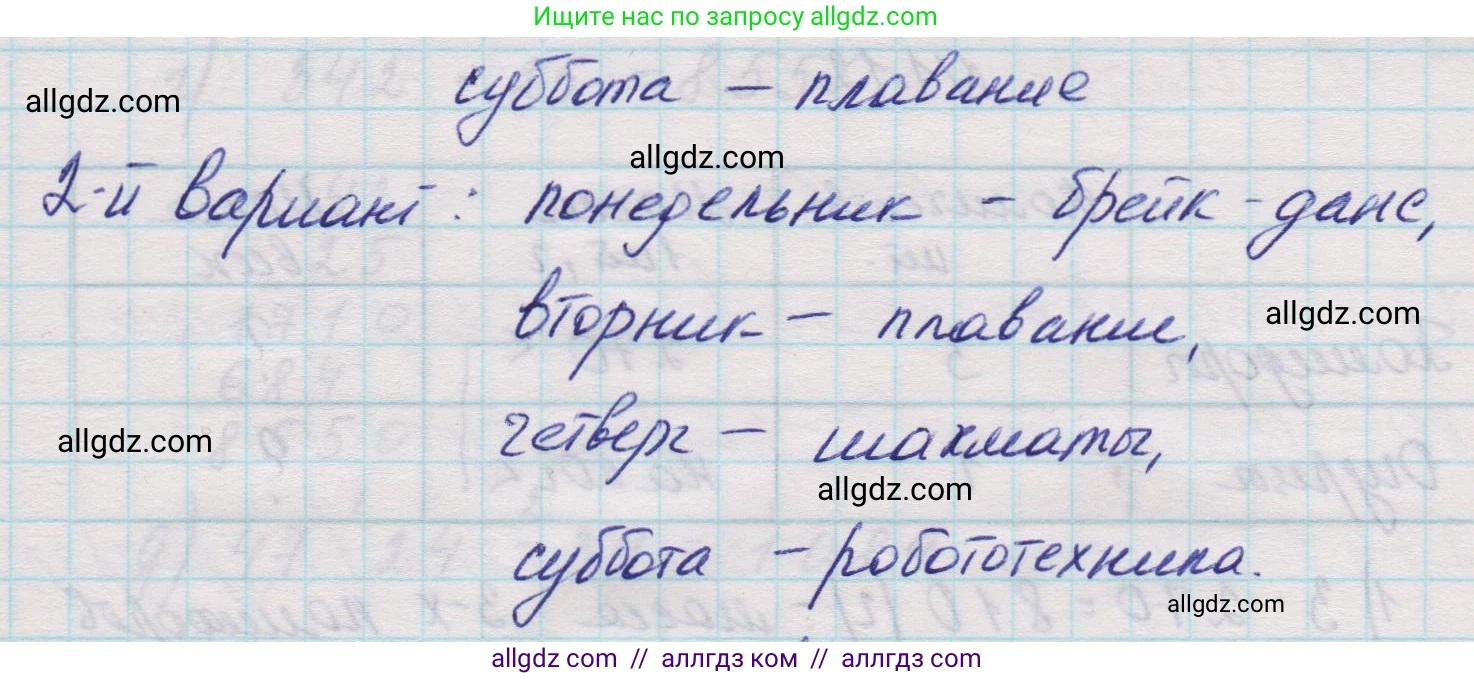 Ищите нас по запросу allgdz.com
суббота – плавание
allgdz.com
allgdz.com
2-й вариант: понедельник – брейк-данс,
вторник – плавание,
allgdz.com
четверг – шахматы,
allgdz.com
allgdz.com
суббота – робототехника.
allgdz.com
allgdz com // аллгдз ком // аллгдз com